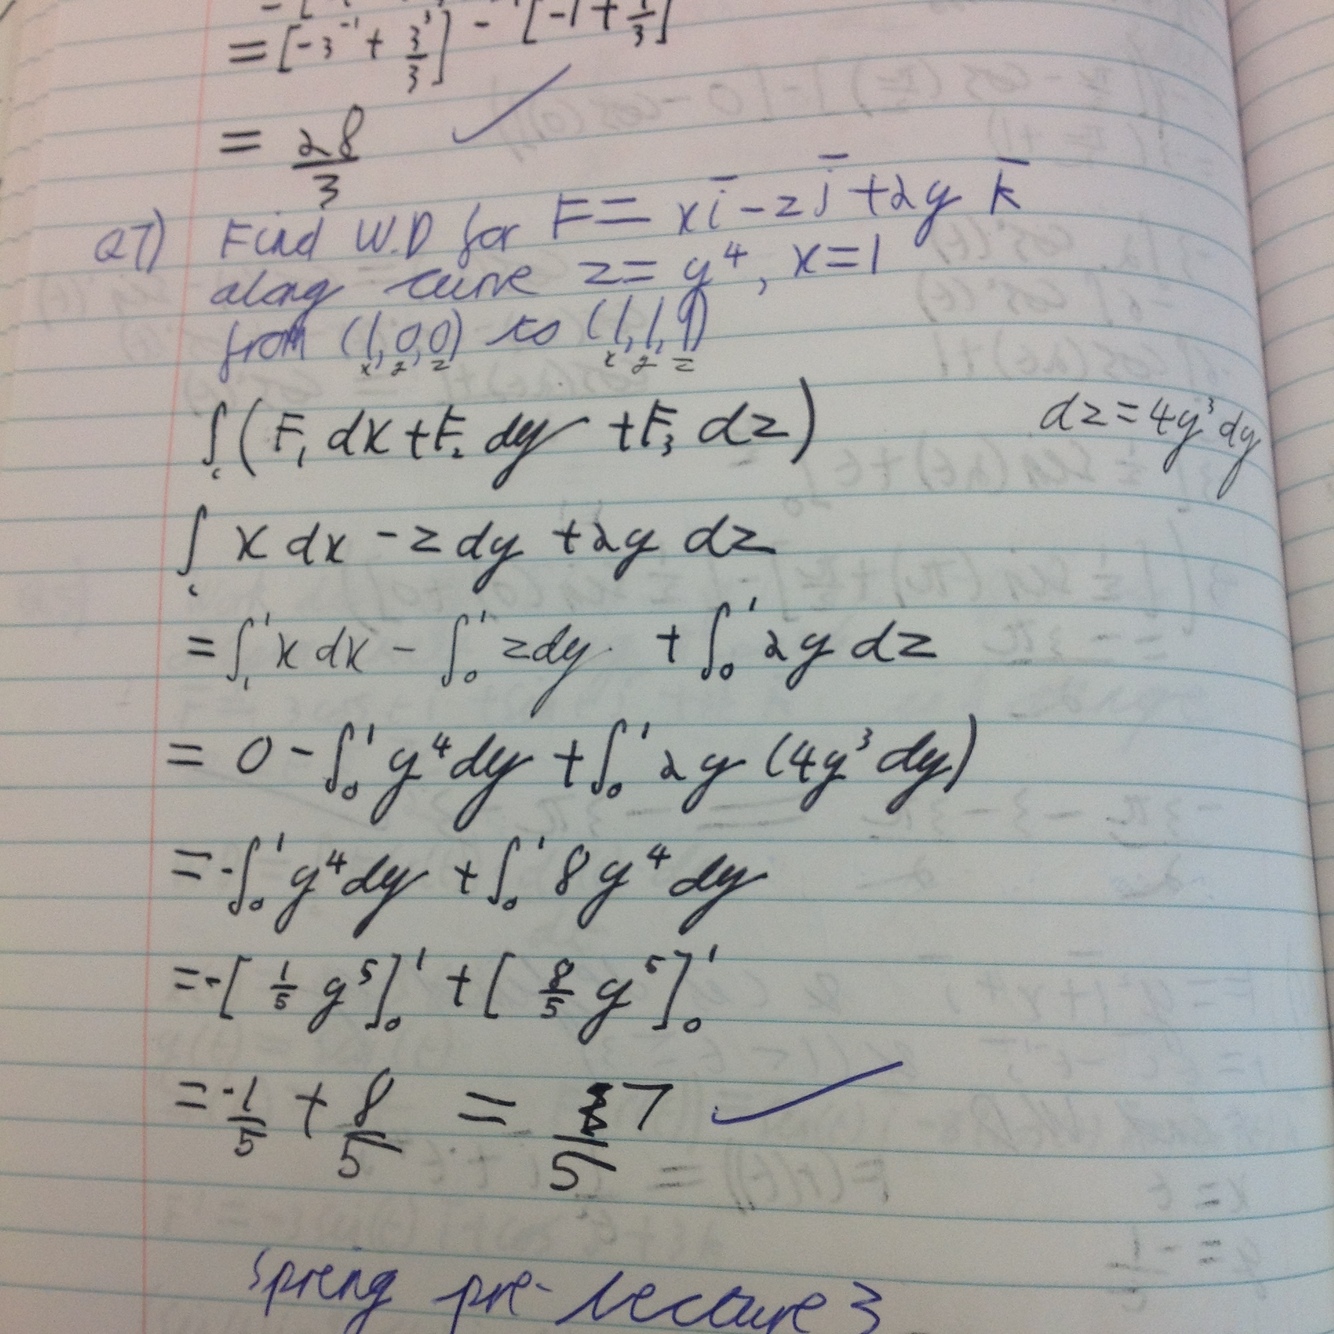 = [-3⁻¹ + 3³/3] - [-1 + 1/3]
= 28/3
Q7) Find W.D for F = xi̅ - zj̅ + 2y k̅
along curve z = y⁴, x = 1
from (1,0,0) to (1,1,1)
x y z x y z
∫c (F₁ dx + F₂ dy + F₃ dz) dz = 4y³ dy
∫c x dx - z dy + 2y dz
= ∫₁¹ x dx - ∫₀¹ z dy + ∫₀¹ 2y dz
= 0 - ∫₀¹ y⁴ dy + ∫₀¹ 2y (4y³ dy)
= -∫₀¹ y⁴ dy + ∫₀¹ 8y⁴ dy
= -[1/5 y⁵]₀¹ + [8/5 y⁵]₀¹
= -1/5 + 8/5 = 7/5
Spring pre-lecture 3